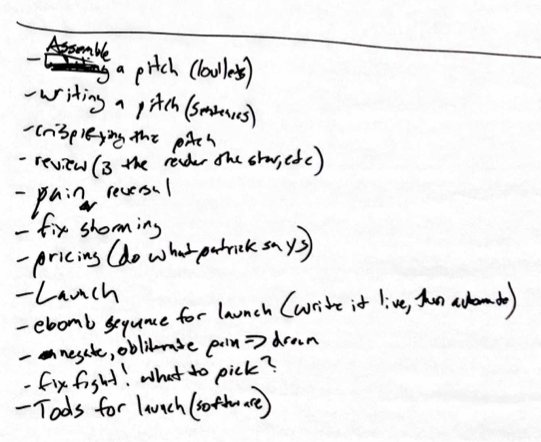 - Assemble a pitch (bullets)
- writing a pitch (sentences)
- crispifying the pitch
- review (is the reader the star, etc)
- pain reversal
- fix storming
- pricing (do what patrick says)
- Launch
- ebomb sequence for launch (write it live, then automate)
- negate, obliterate pain => dream
- fix fight! what to pick?
- Tools for launch (software)